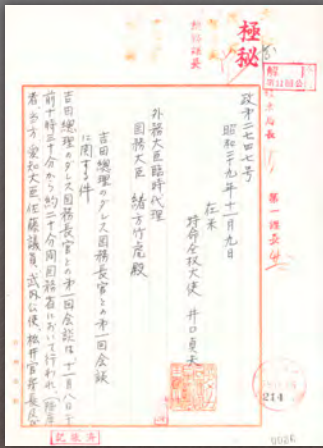 極秘
総務課長
解
第11回公
政務局長
第一課長
政才二七四七号
昭和二十九年十一月九日
在米
特命全権大使 井口貞夫
外務大臣臨時代理
国務大臣 緒方竹虎殿
吉田總理のダレス国務長官との才一回会談
に関する件
吉田總理のダレス国務長官との才一回会談は、十一月八日午
前十時三十分から約二十分間国務省において行われ（陪席
者、当方 愛知大臣、佐藤議員、武内公使、松井官房長及び
214
記帳済
0026